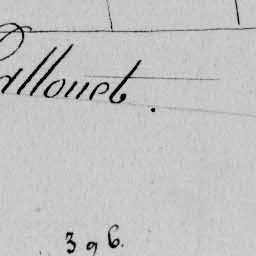 Pallouet.
396.